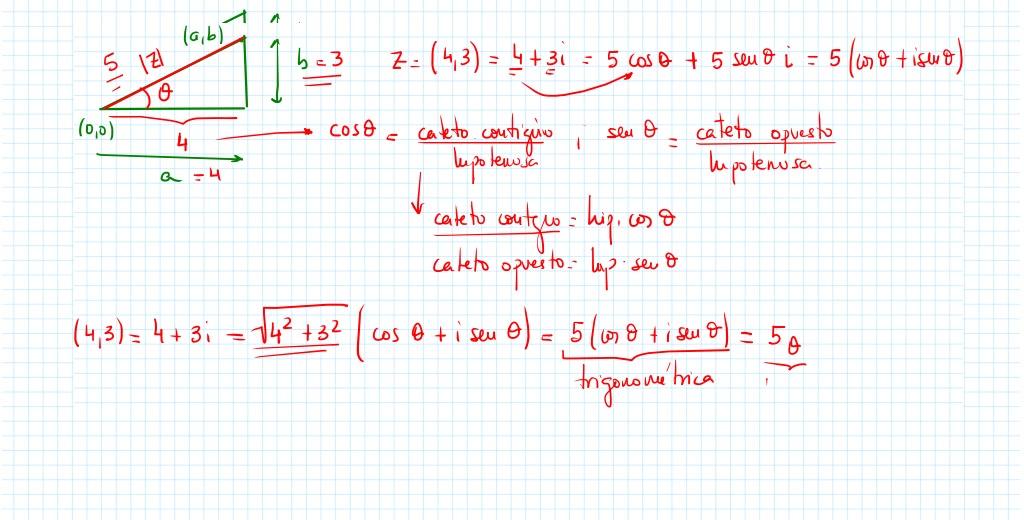 (a,b)
5 |z|
b = 3
θ
(0,0)
4
a = 4
z = (4,3) = 4 + 3i = 5 cosθ + 5 senθ i = 5 (cosθ + i senθ)
cosθ = cateto contiguo / hipotenusa ; sen θ = cateto opuesto / hipotenusa.
cateto contiguo = hip. cos θ
cateto opuesto = hip. sen θ
(4,3) = 4 + 3i = √4² + 3² (cos θ + i sen θ) = 5 (cos θ + i sen θ) = 5θ
trigonométrica